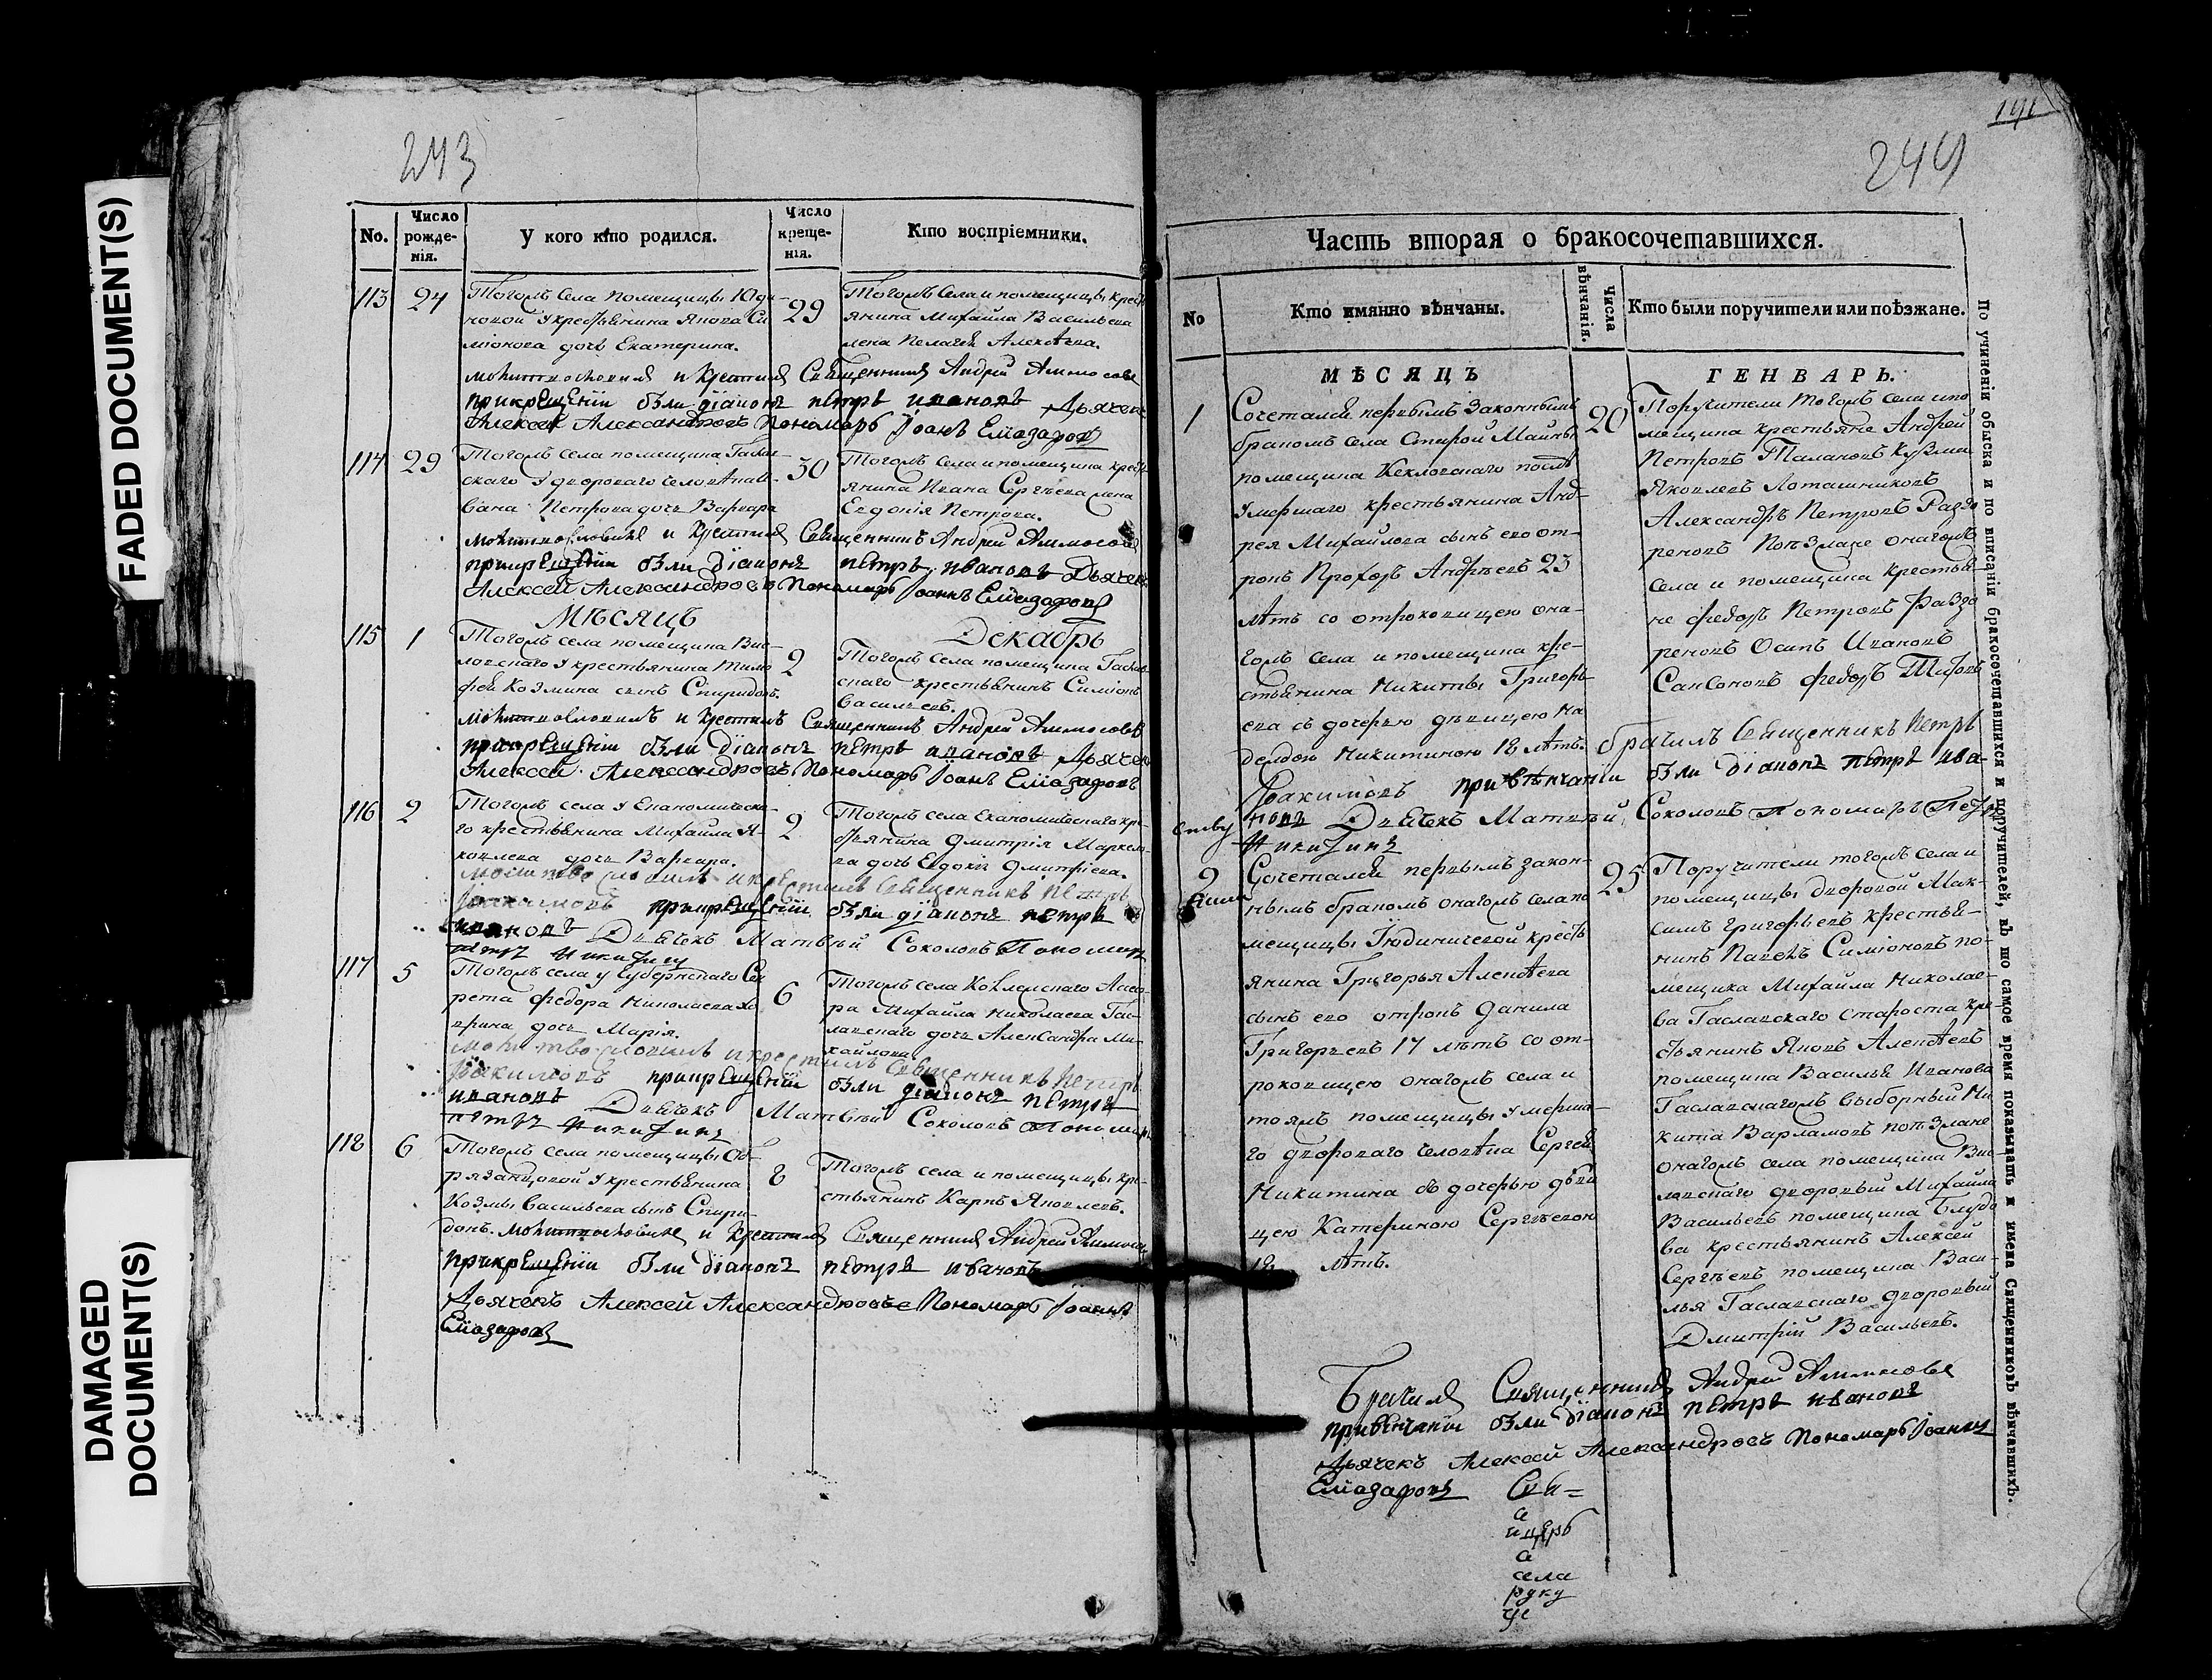 FADED DOCUMENT(S)
DAMAGED
DOCUMENT(S)
243
No.
Число
рожде-
нія.
У кого кто родился.
Число
креще-
нія.
Кто воспріемники.
113
24
Тогожъ села помещицы Юди-
новой у крестьянина Якова Си
міонова дочь Екатерина.
29
Тогожъ села и помещицы крест
янина Михайла Васильева
жена Пелагея Алексѣева.
молитвословил и крестил Священник Андрей Аммосовъ
прикрещеніи были діаконъ петръ ивановъ Дьячекъ
Алексей Александровъ Пономарь Іоанъ Елиазаровъ
114
29
Тогожъ села помещика Гаслав-
скаго у двороваго человѣка
Петрова дочь Варвара
30
Тогожъ села и помещика крест
янина Ивана Сергѣева жена
Евдокія Петрова.
молитвословил и крестил Священникъ Андрей Аммосовъ
прикрещеніи были діаконъ петръ ивановъ Дьячекъ
Алексей Александровъ Пономарь Іоаннъ Елиазаровъ
Мѣсяцъ
Декабрь
115
1
Тогожъ села помещика Вис-
ловскаго у крестьянина Тимо
фея Козмина сынъ Спиридонъ.
2
Тогожъ села помещика Гаслав
скаго крестьянинъ Симіонъ
Васильевъ.
молитвословилъ и крестилъ Священникъ Андрей Аммосовъ
прикрещеніи были діаконъ петръ ивановъ Дьячекъ
Алексей Александровъ Пономарь Іоанъ Елиазаровъ
116
2
Тогожъ села у Економическа-
го крестьянина Михайла Я-
ковлева дочь Варвара.
2
Тогожъ села Економическаго кре-
стьянина Дмитрія Маркело-
ва дочь Евдокія Дмитріева.
молитвословилъ и крестилъ Священникъ Петръ
Іоакимовъ прикрещеніи были діаконъ петръ
ивановъ Дьячекъ Матвѣй Соколовъ Пономарь
петръ Никитинъ
117
5
Тогожъ села у Губернскаго Сек
рета Федора Николаева
дочь Марія.
6
Тогожъ села Колежскаго Асесо-
ра Михайла Николаева Гас-
лавскаго дочь Александра Ми-
хайлова.
молитвословилъ и крестилъ Священникъ Петръ
Іоакимовъ прикрещеніи были діаконъ петръ
ивановъ Дьячекъ Матвѣй Соколовъ Пономарь
петръ Никитинъ
118
6
Тогожъ села помещицы Об-
рязанцовой у крестьянина
Козмы Васильева сынъ Спири-
донъ.
8
Тогожъ села и помещицы кре-
стьянинъ Карпъ Яковлевъ.
молитвословил и крестил Священник Андрей Аммосовъ
прикрещеніи были діаконъ петръ ивановъ
Дьячекъ Алексей Александровъ Пономарь Іоаннъ
Елиазаровъ
191
244
Часть вторая о бракосочетавшихся.
No
Кто имянно вѣнчаны.
Числа
вѣнчанія.
Кто были поручители или поѣзжане.
МѢСЯЦЪ
ГЕНВАРЬ.
1
Сочетался первымъ законнымъ
бракомъ села Старой Майны
помещика Кекловскаго послѣ
умершаго крестьянина Анд-
рея Михайлова сынъ его от-
рокъ Прохоръ Андрѣевъ 23
лѣтъ со отроковицею она-
гожъ села и помещика кре-
стьянина Никиты Григорь-
ева съ дочерью дѣвицею На
деждою Никитиною 18 лѣтъ.
20
Поручители тогожъ села и по
мещика крестьяне Андрей
Петровъ Талановъ Кузма
Яковлевъ Лоташниковъ
Александръ Петровъ Раззо
реновъ поѣзжане онагожъ
села и помещика крестья-
не Федоръ Петровъ Раззо
реновъ Осипъ Ивановъ
Сансоновъ Федоръ Титовъ
брачилъ Священникъ Петръ
Іоакимовъ привѣнчаніи были діаконъ петръ ива-
новъ Дьячекъ Матвѣй Соколовъ Пономарь Петръ
Никитинъ
2
Сочетался первымъ закон-
нымъ бракомъ онагожъ села по
мещицы Юдиничевой крест
янина Григорья Алексѣева
сынъ его отрокъ Данила
Григорьевъ 17 лѣтъ со от-
роковицею онагожъ села и
тояжъ помещицы умерша-
го двороваго человѣка Сергея
Никитина съ дочерью дѣви
цею Катериною Сергѣевою
18 лѣтъ.
25
Поручители тогожъ села и
помещицы дворовой Мак-
симъ Григорьевъ крестья-
нинъ Павелъ Симіоновъ по-
мещика Михайла Николае-
ва Гаславскаго староста кре-
стьянинъ Яковъ Алексѣевъ
помещика Василья Иванова
Гаславскагожъ выборный Ни
кита Варламовъ поѣзжане
онагожъ села помещика Вис-
ловскаго дворовый Михайла
Васильевъ помещика Блудо
ва крестьянинъ Алексей
Сергѣевъ помещика Васи-
лья Гаславскаго дворовый
Дмитрій Васильевъ.
Брачил Священник Андрей Аммосовъ
привенчаніи были діаконъ петръ ивановъ
Дьячекъ Алексей Александровъ Пономарь Іоаннъ
Елиазаровъ
По учиненіи обыска и по вписаніи бракосочетавшихся и поручителей, въ то самое время показывать и имена Священниковъ вѣнчавшихъ.